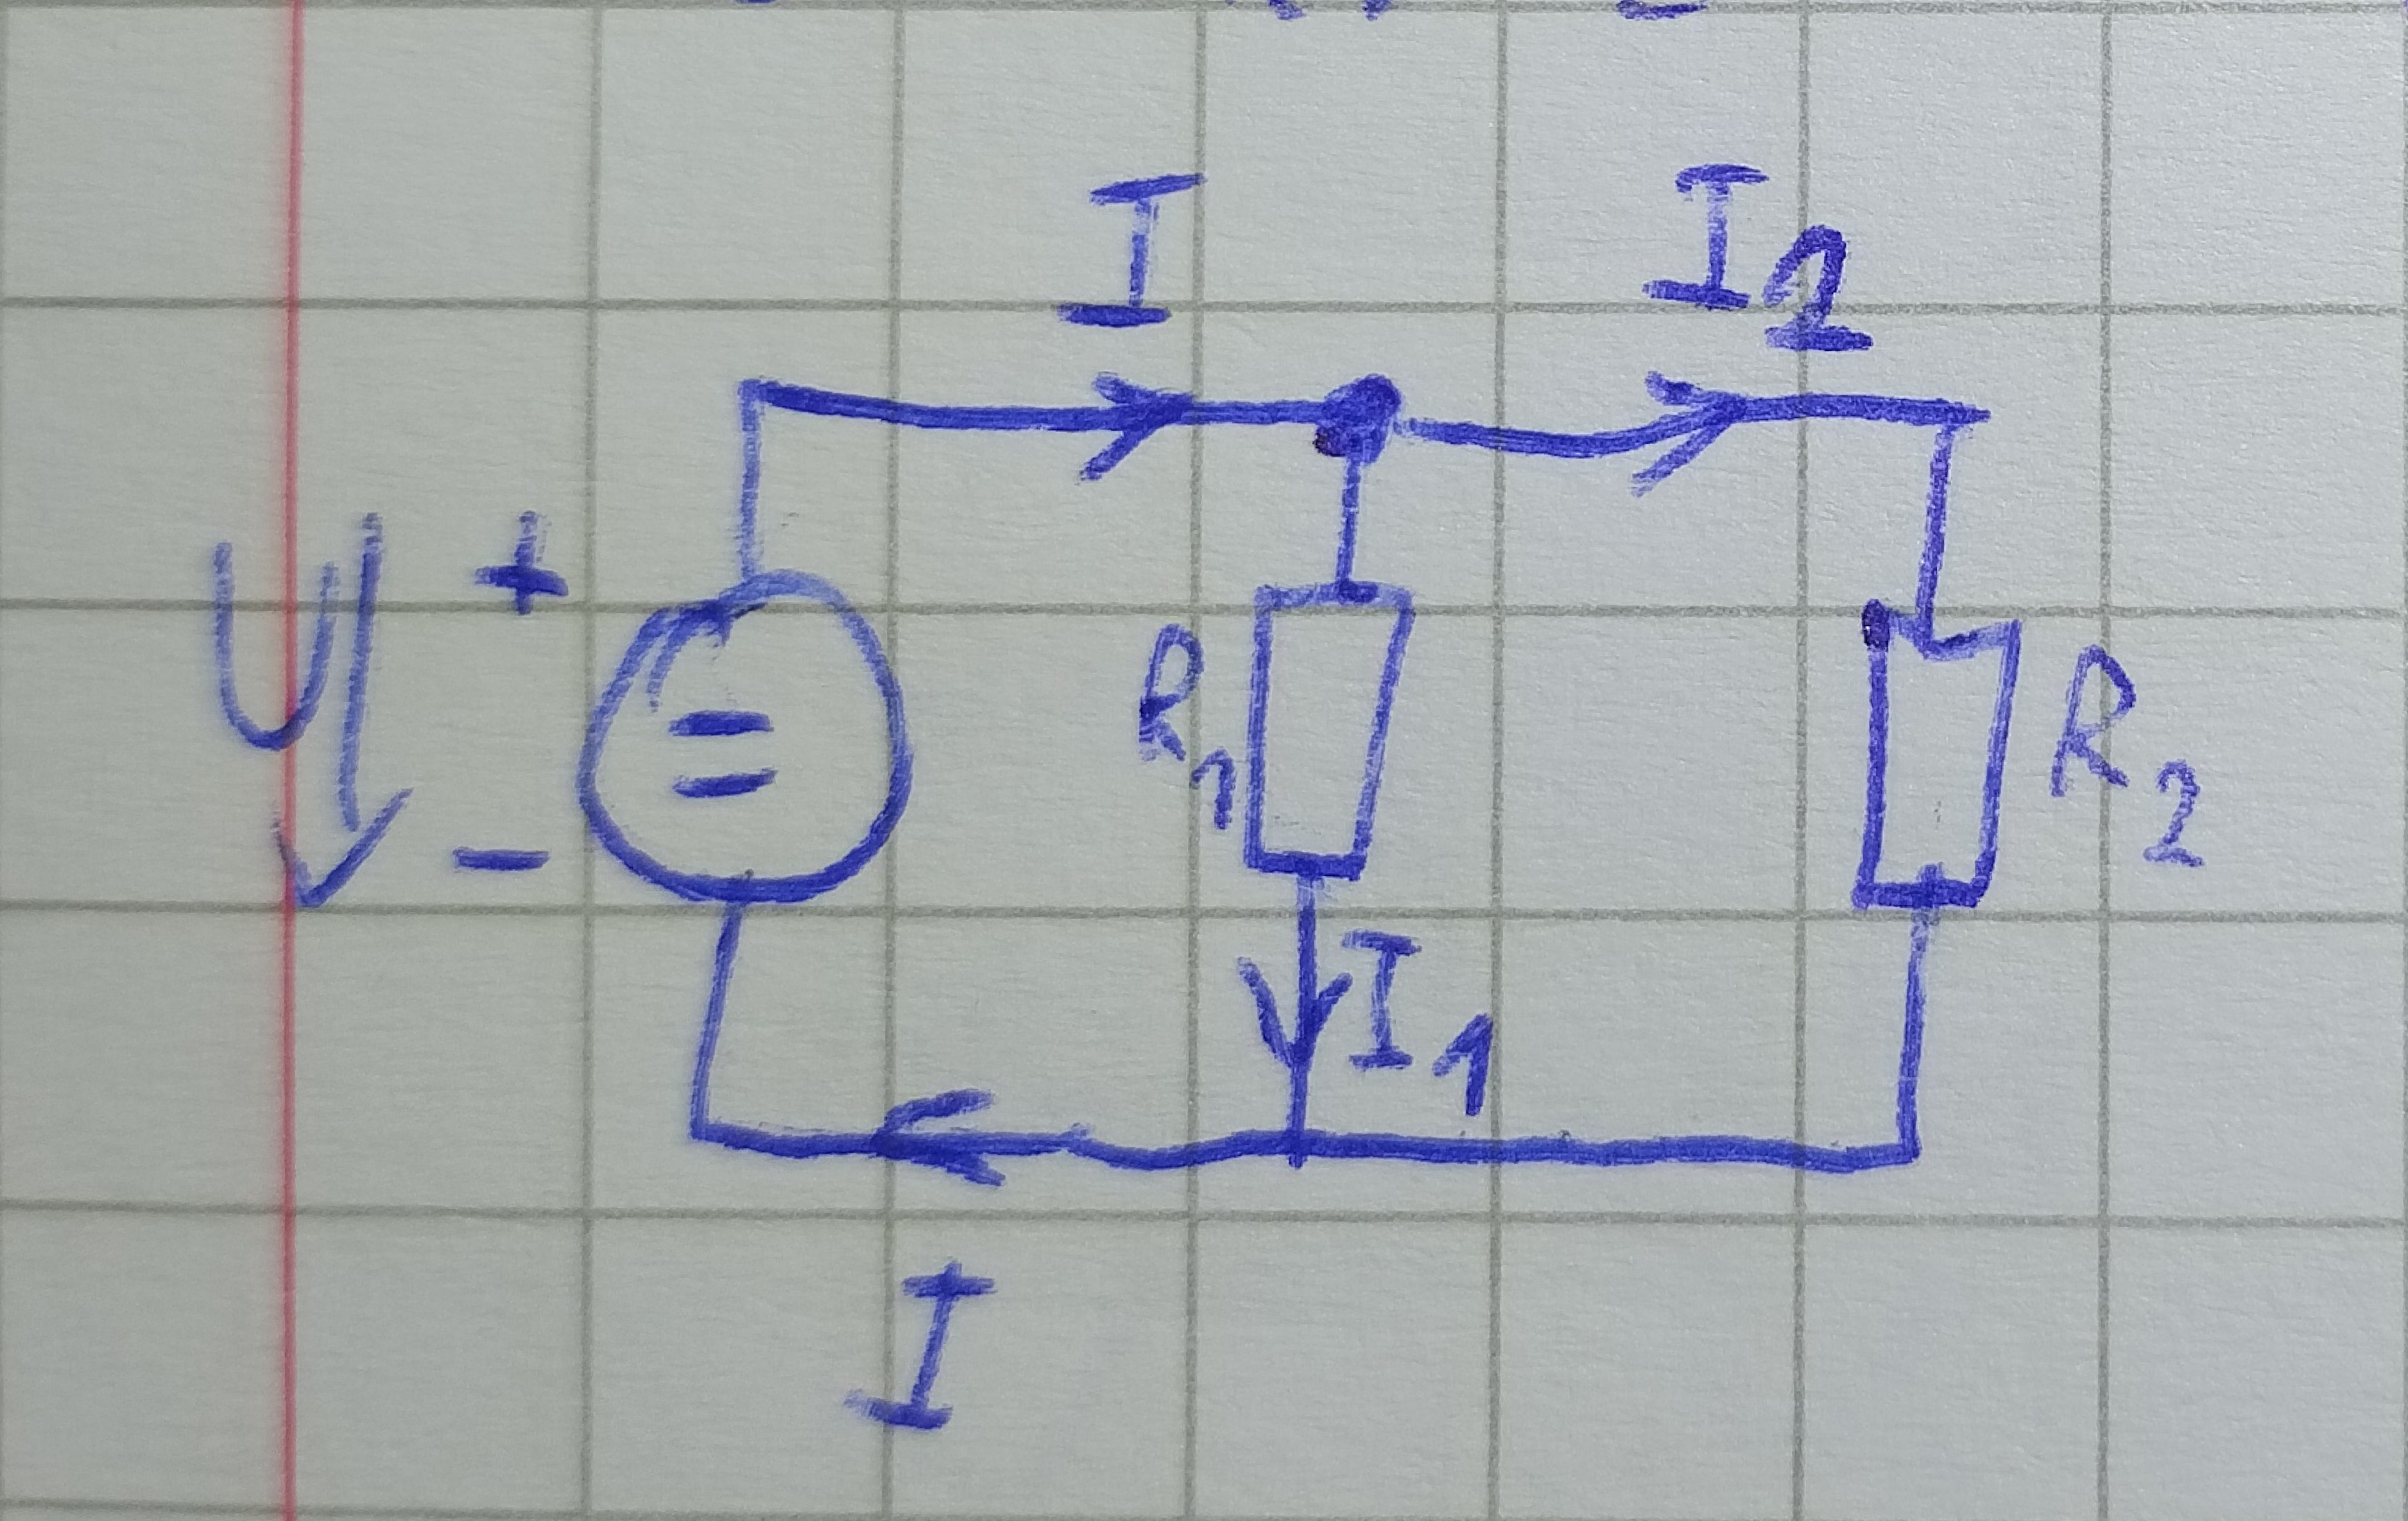 I I2
U + = R1 R2
-
I1
I